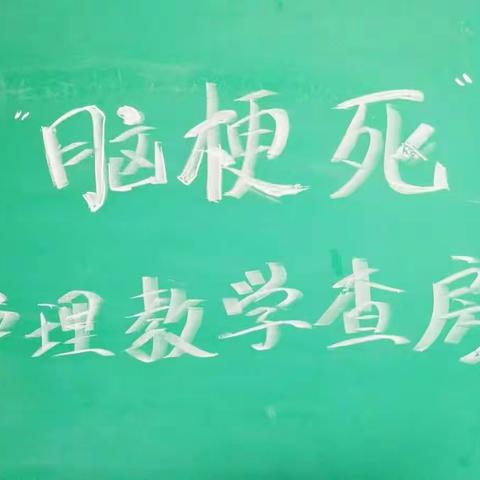 "脑梗死"
护理教学查房